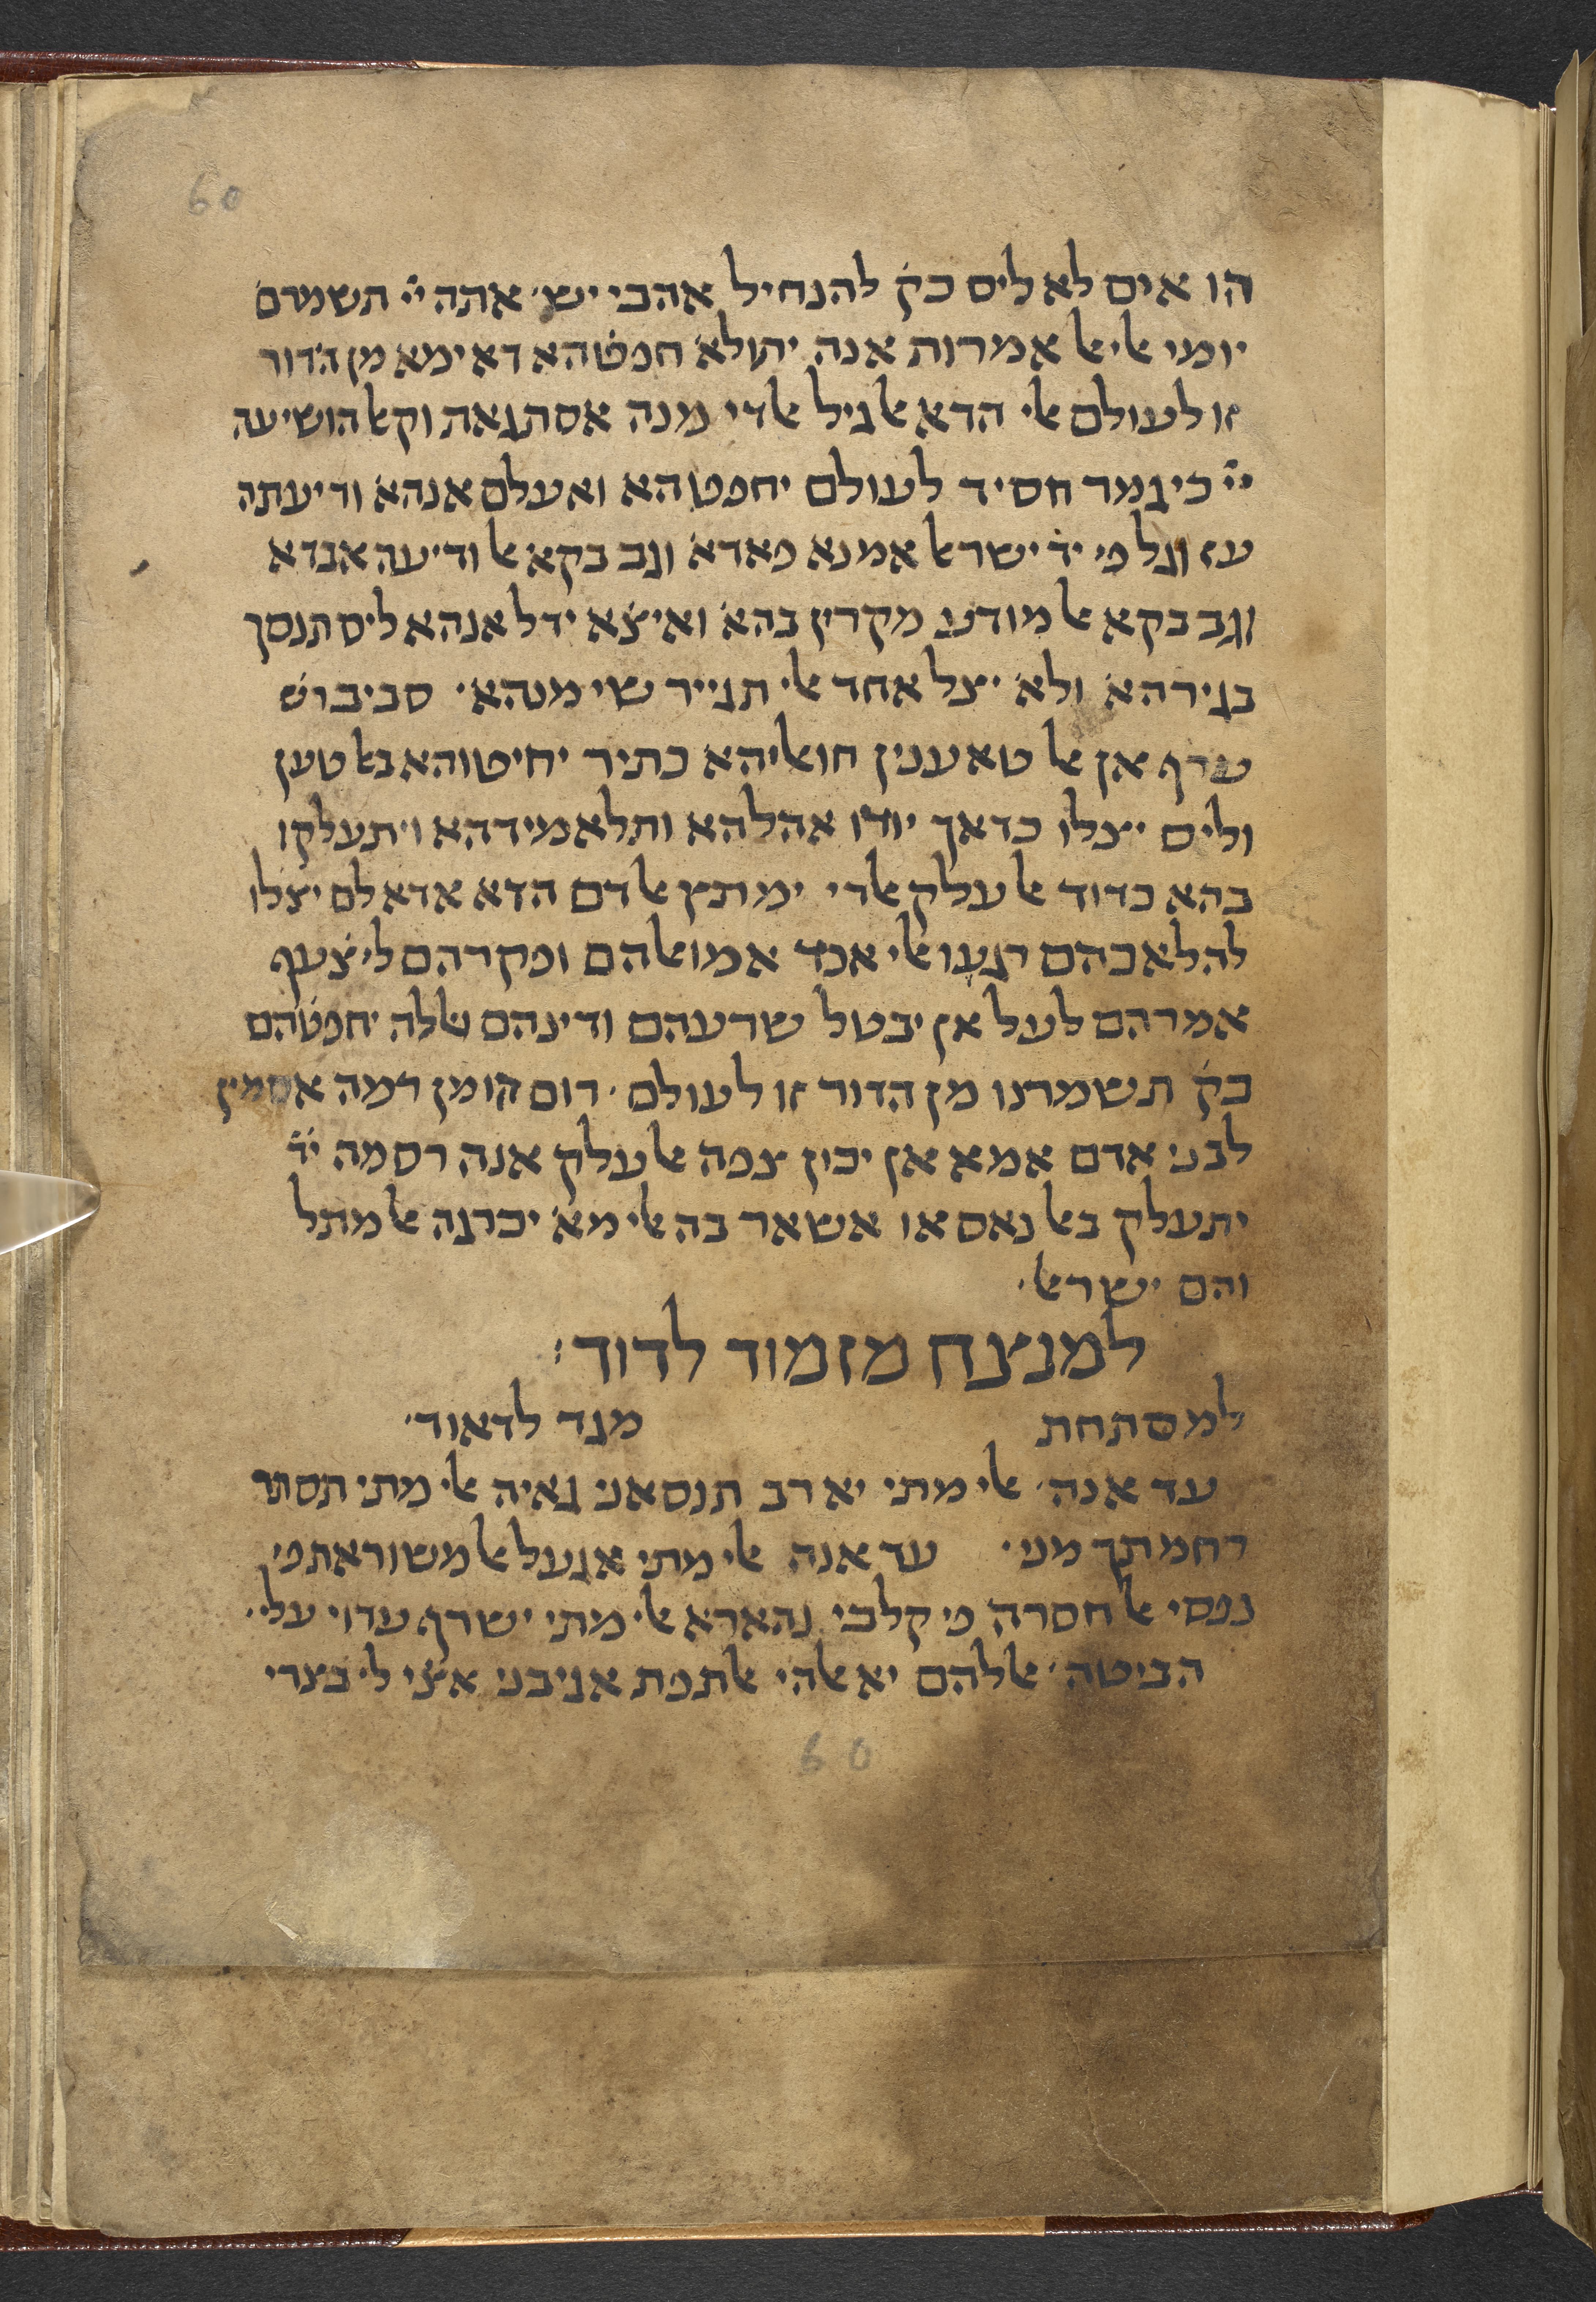 60
הו אים לא ליס כק׳ להנחיל אהבי יש׳ אתה י֞י תשמרם
יומי אלי אל אמרות אנה יתולא חפט̇הא דאימא מן הדור
זו לעולם אלי הדא אלגיל אלדי מנה אסתגאת וקאל הושיעה
י֞י כי גמר חסיד לעולם יחפט̇הא ואעלם אנהא ודיעתה
ענד וגל פי יד ישראל אמנא פאדא וגב בקא אלודיעה אבדא
וגב בקא אלמודע מקרין בהא ואיצ̇א ידל אנהא ליס תנסך
בגירהא ולא יצל אחד אלי תגייר שי מנהא׳ סביב רש׳
ערף אן אלטאענין חואליהא כתיר יחיטוהא באלטען
וליס יצלו כדאך יודו אהלהא ותלאמידהא ויתעלקו
בהא כדוד אלעלק אלדי ימתץ אלדם הדא אדא לם יצלו
להלאכהם רגעו אלי אכד אמואלהם ופקרהם ליצ̇עף
אמרהם לעל אן יבטל שרעהם ודינהם אללה יחפט̇הם
כק׳ תשמרנו מן הדור זו לעולם׳ רום הו מן רמה אסמין
לבני אדם אמא אן יכון צפה אלעלק אנה רסמה יד̇
יתעלק באלנאס או אשאר בה אלי מא יכרגה אלמתל
והם ישראל׳
למנצח מזמור לדוד׃
למסתחת מגד לדאוד׳
עד אנה׳ אלי מתי יא רב תנסאני גאיה אלי מתי תסתר
רחמתך מני׳ עד אנה אלי מתי אגעל אלמשוראת פי
נפסי אלחסרה פי קלבי נהארא אלי מתי ישרף עדוי עלי׳
הביטה׳ אללהם יא אלהי אלתפת אגיבני אצ̇י לי בצרי
60